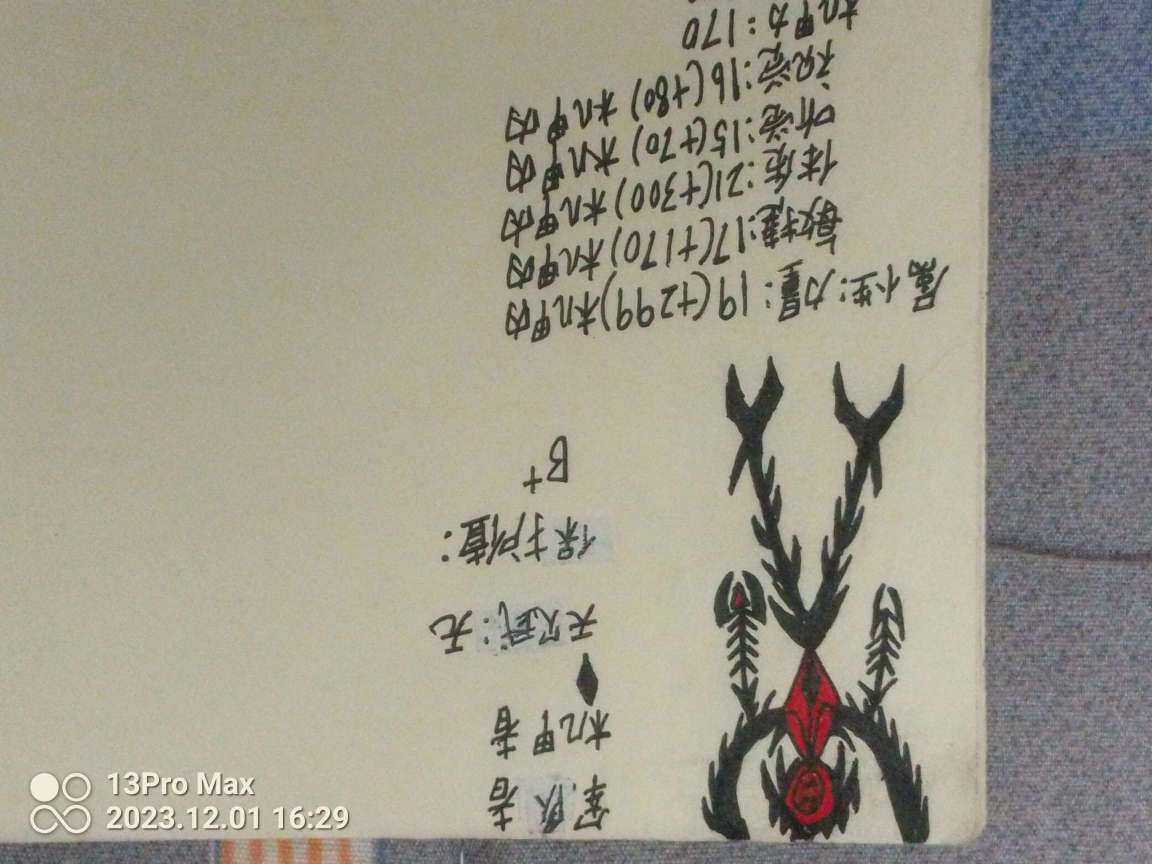 军队者
机甲者
天赋:无
保护值:
B+
属性:力量:19(+299)机甲内
敏捷:17(+170)机甲内
体质:21(+300)机甲内
听觉:15(+70)机甲内
视觉:16(+80)机甲内
机甲力:170
13Pro Max
2023.12.01 16:29